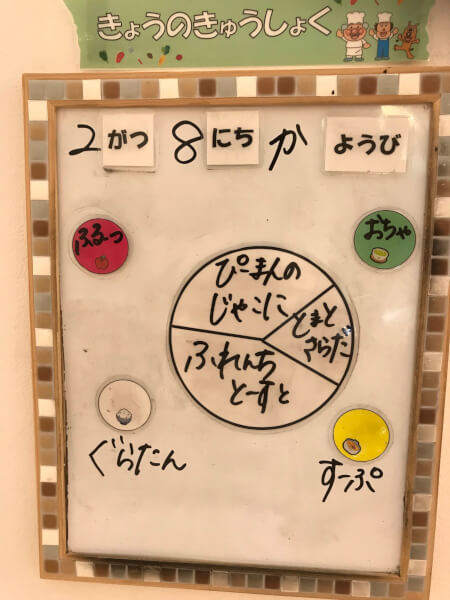 きょうのきゅうしょく
2 がつ 8 にち か ようび
ふるーつ
おちゃ
ぴーまんの
じゃこに
とまと
さらだ
ふれんち
とーすと
ぐらたん
すーぷ